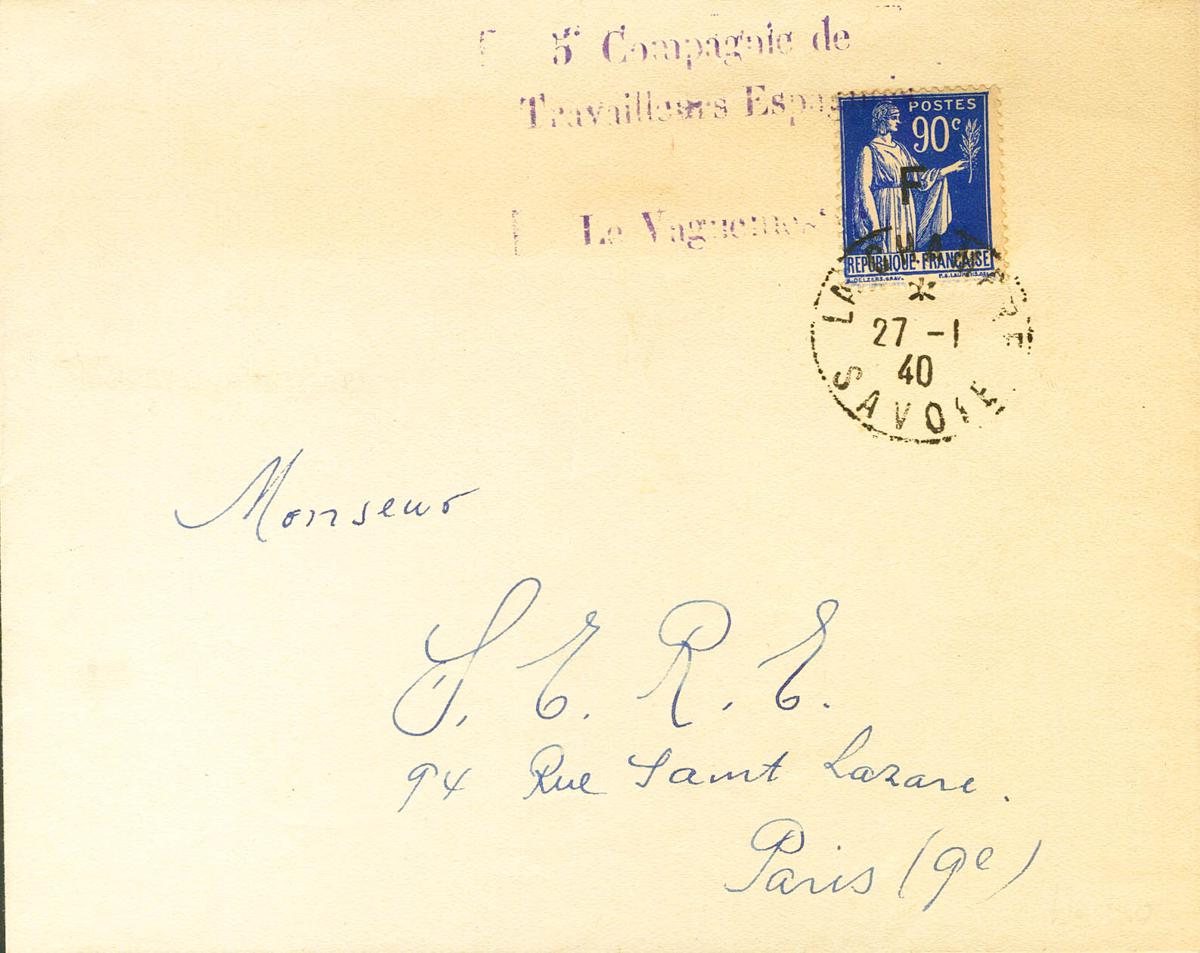 5e Compagnie de
Travailleurs Espagnols
Le Vaguemes
POSTES
90c
F
REPUBLIQUE·FRANÇAISE
LA CHAMBRE
27 -1
40
SAVOIE
Monseur
S. E. R. E.
94 Rue Saint Lazare.
Paris (9e)